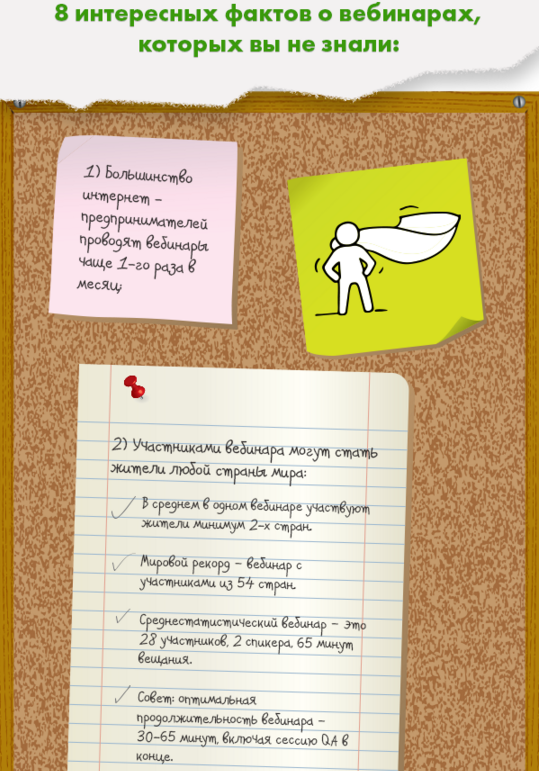 8 интересных фактов о вебинарах,
которых вы не знали:
1) Большинство
интернет –
предпринимателей
проводят вебинары
чаще 1-го раза в
месяц;
2) Участниками вебинара могут стать
жители любой страны мира:
В среднем в одном вебинаре участвуют
жители минимум 2-х стран.
Мировой рекорд – вебинар с
участниками из 54 стран.
Среднестатистический вебинар – это
28 участников, 2 спикера, 65 минут
вещания.
Совет: оптимальная
продолжительность вебинара –
30-65 минут, включая сессию QA в
конце.